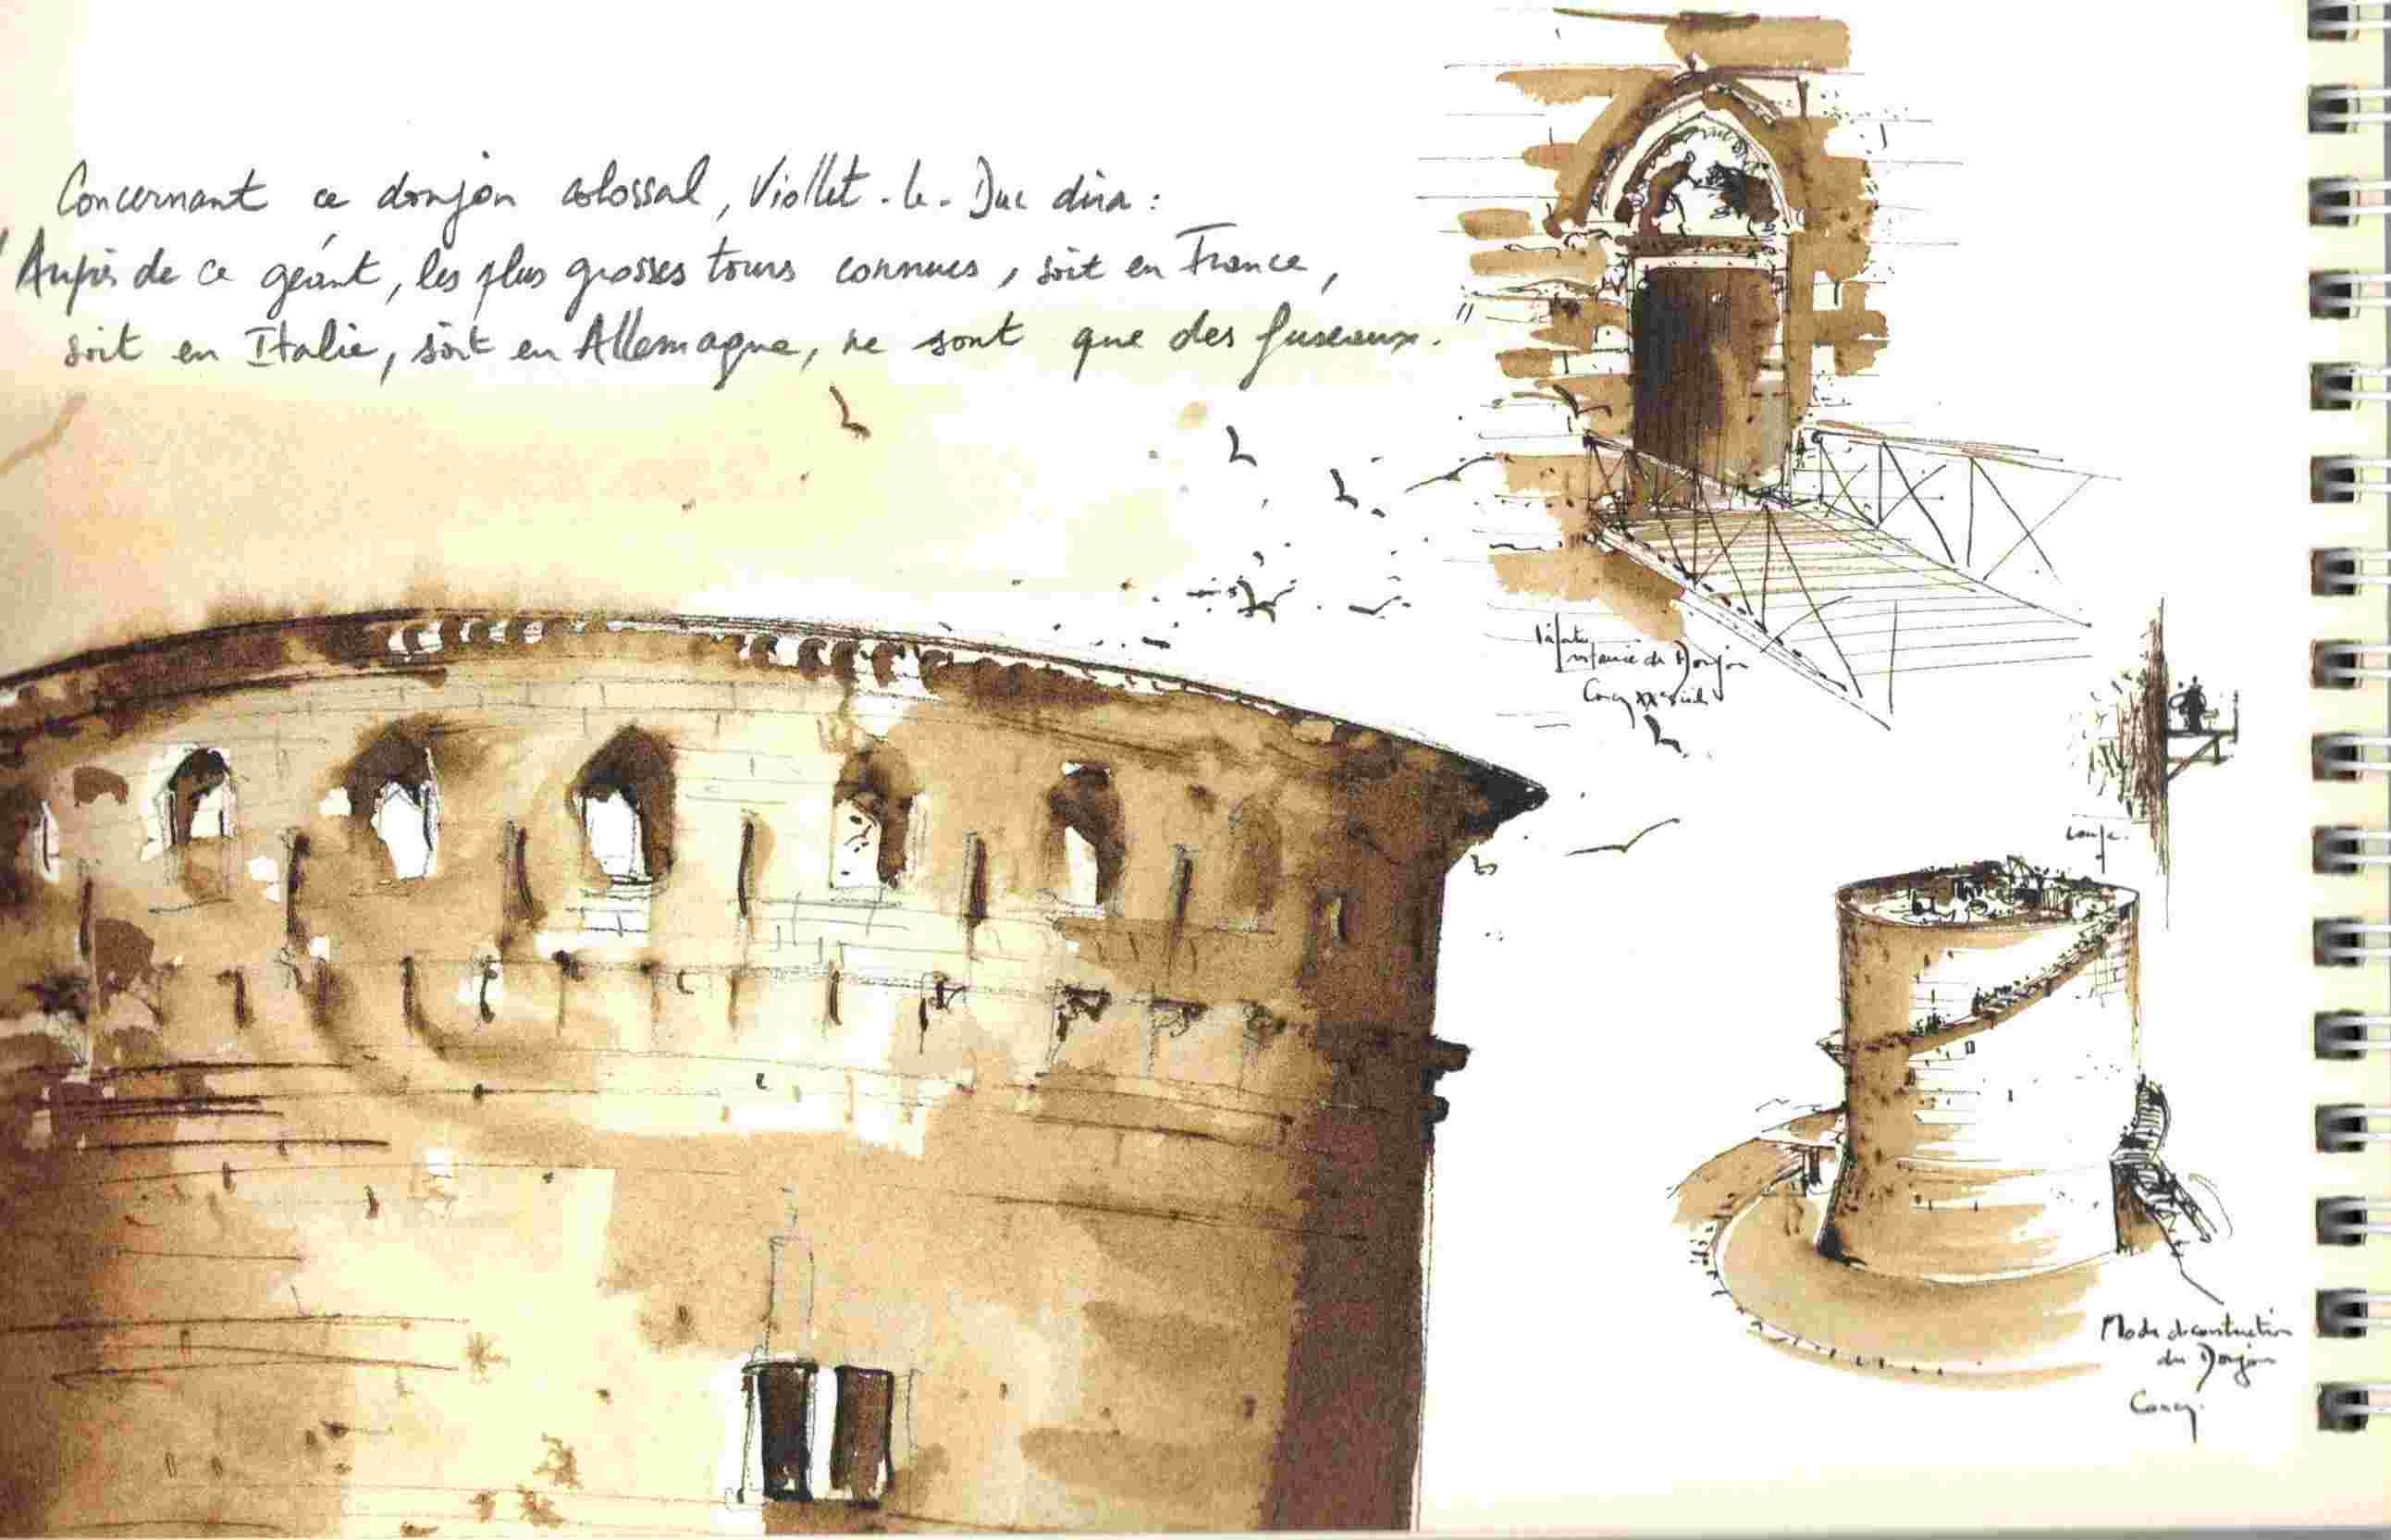 Concernant ce donjon colossal, Viollet-le-Duc dira :
"Auprès de ce géant, les plus grosses tours connues, soit en France,
soit en Italie, soit en Allemagne, ne sont que des fuseaux."
la porte
du Donjon
Coucy XXe siècle
coupe.
Mode de construction
du Donjon
Coucy.